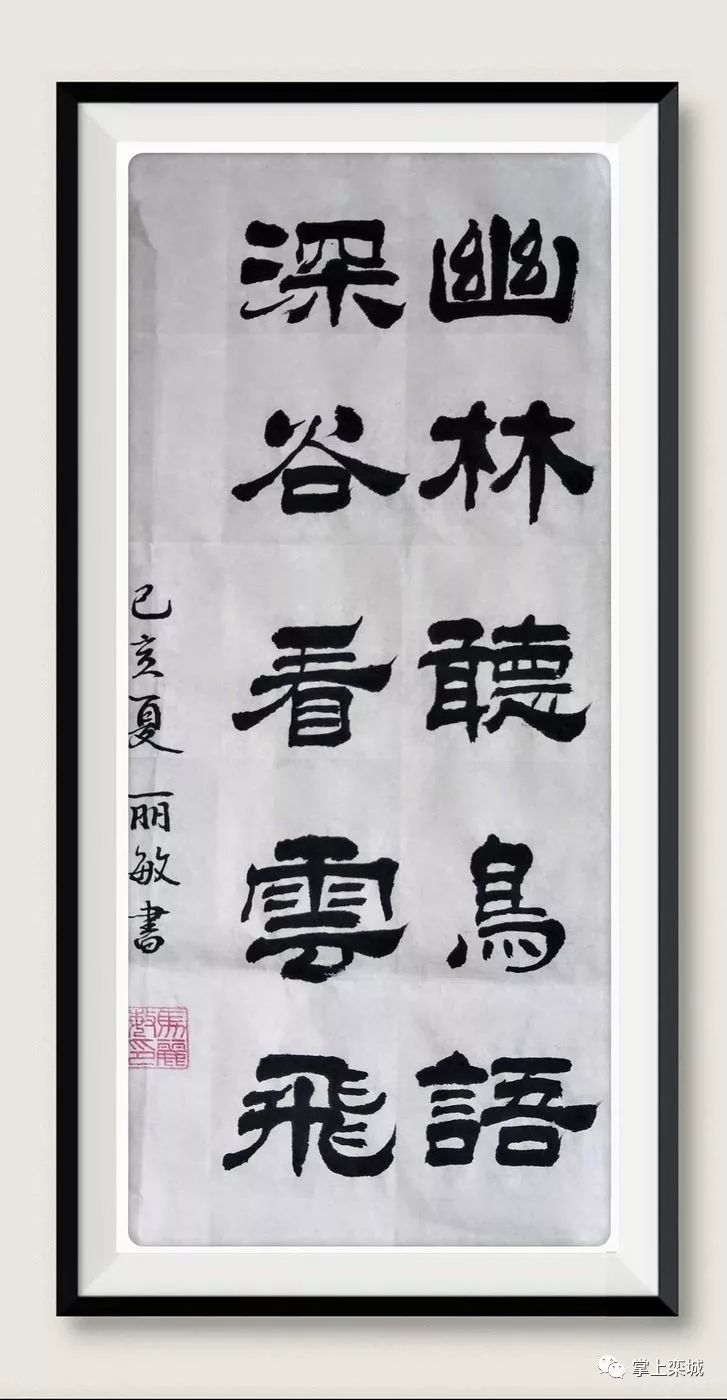 幽林聽鳥語
深谷看雲飛
己亥夏 丽敏書
馬麗敏印
掌上栾城